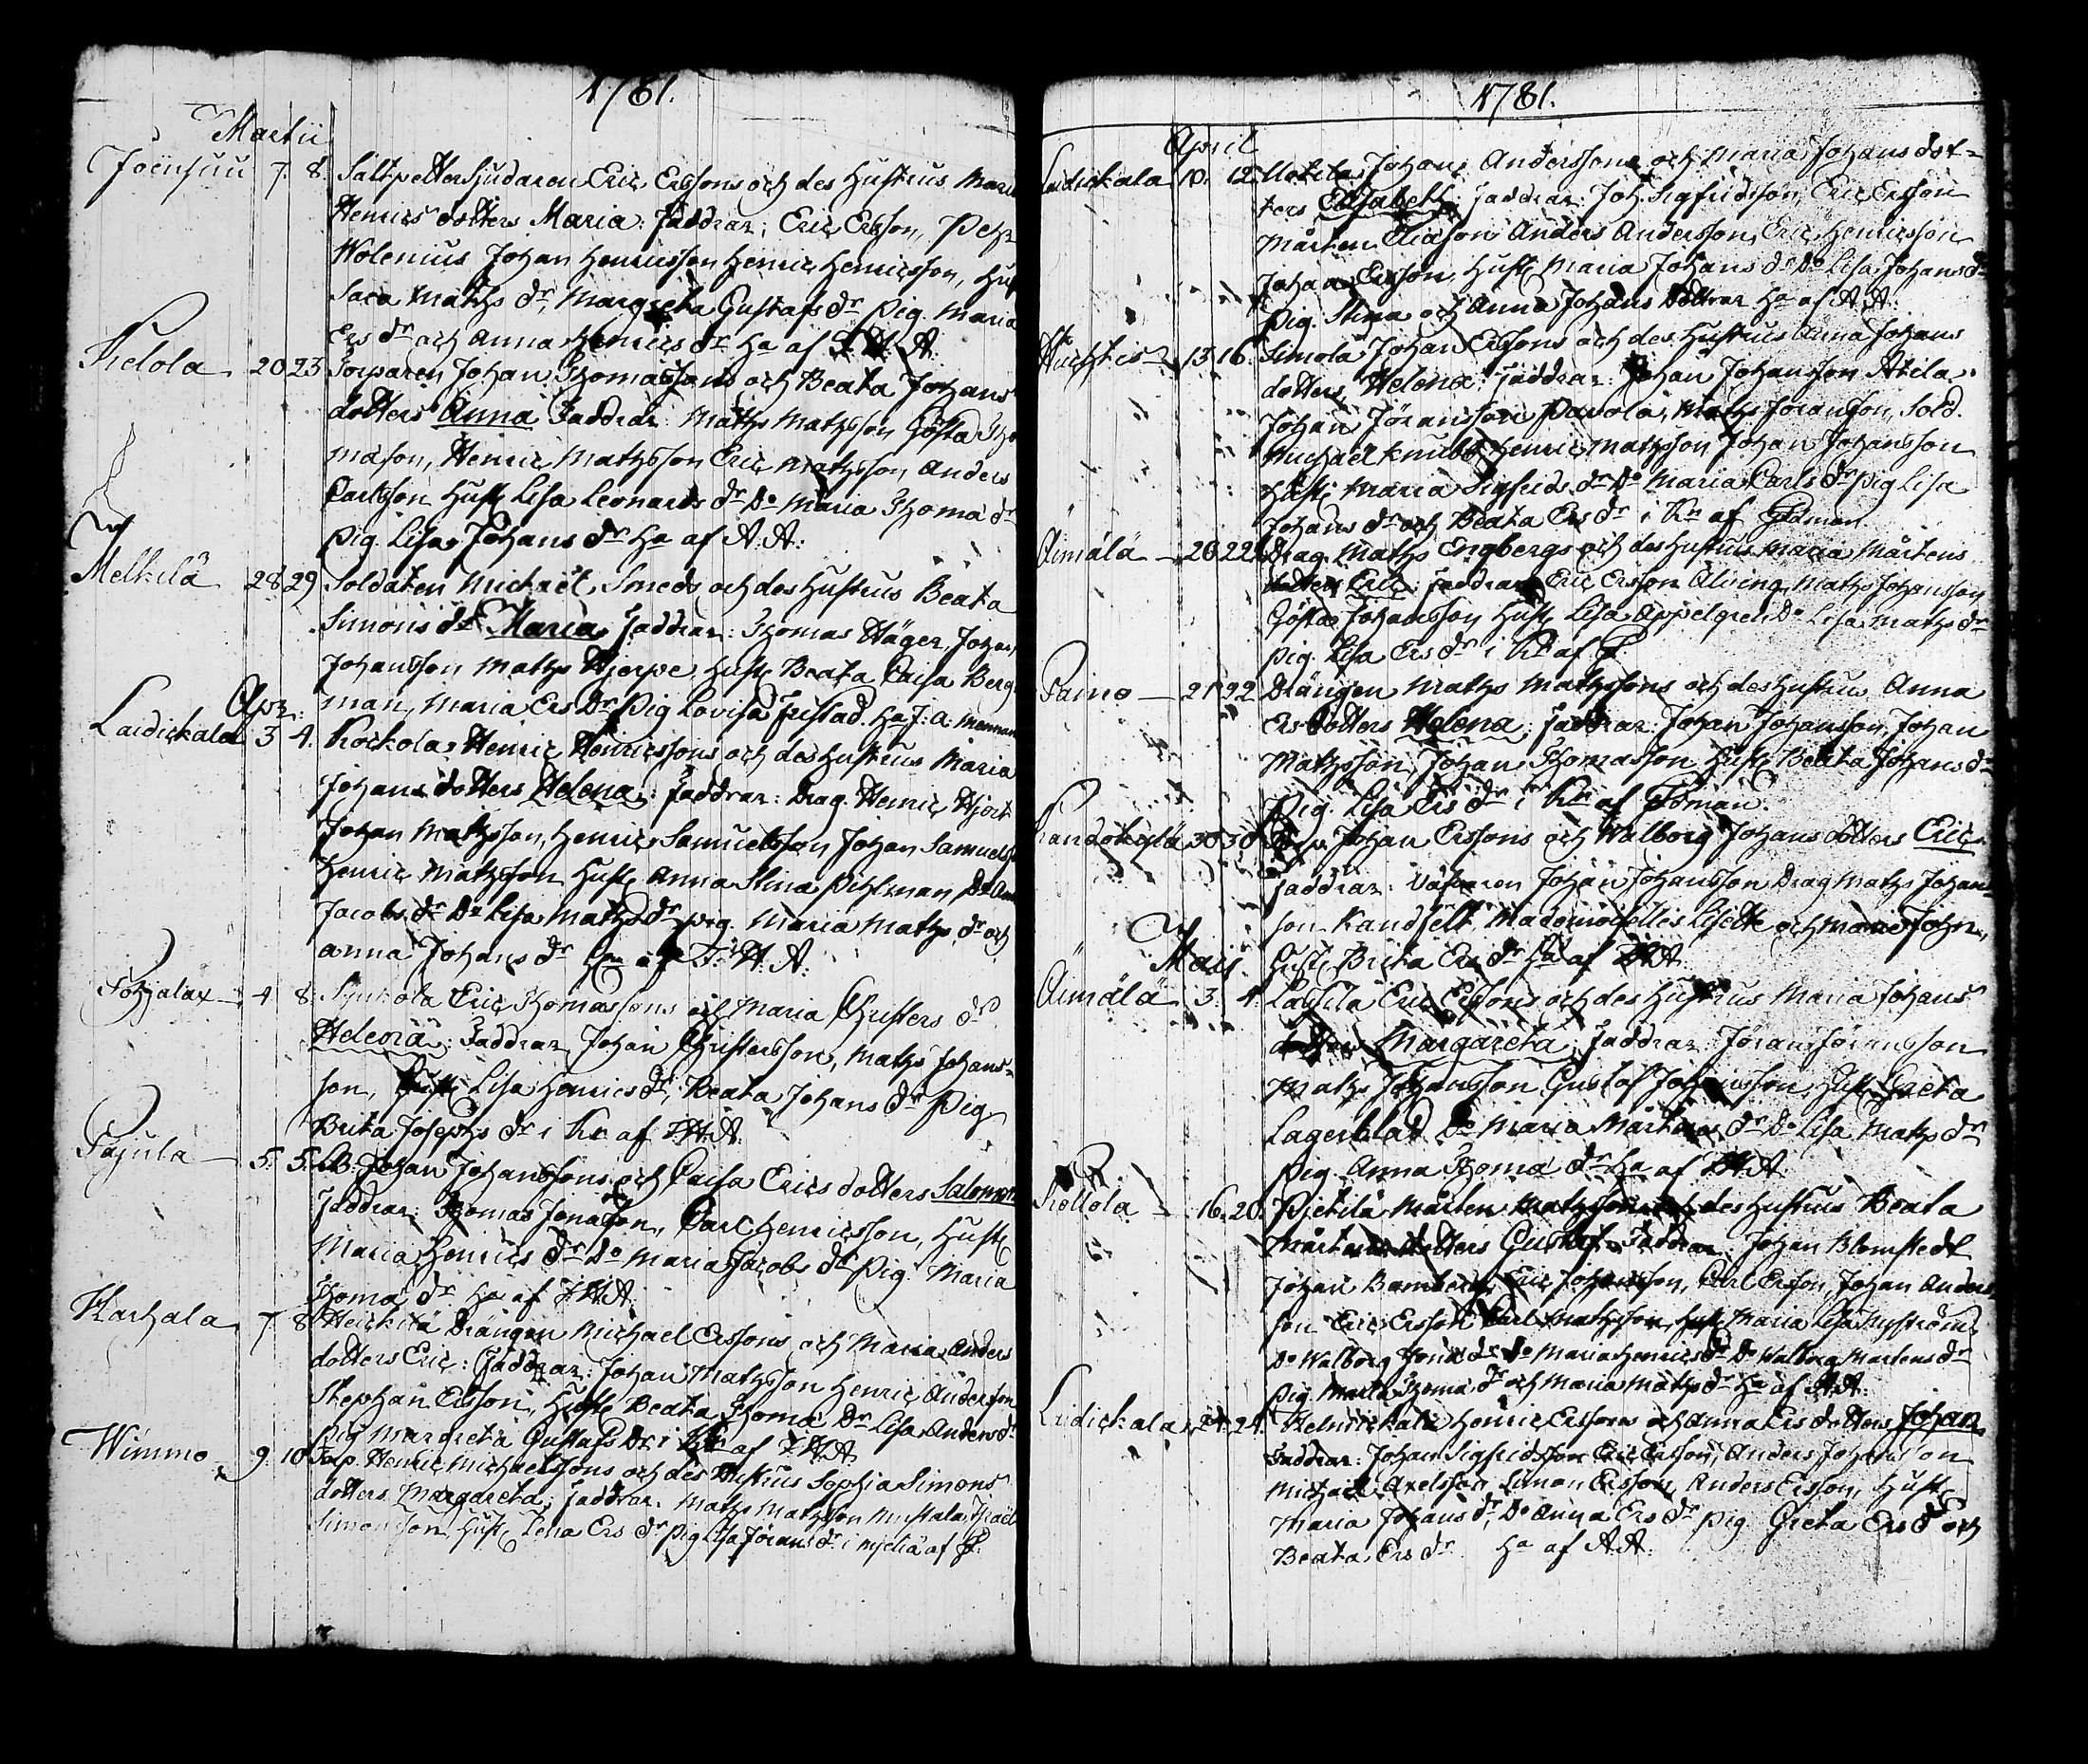 1781.
Martii
Joensuu 7. 8. Saltpettersjudaren Eric Erssons och des Hustrus Maria
Henrics dotters Maria: faddrar: Eric Ersson, Pehr
Wolenius Johan Henricsson Henric Henricsson, Hust
Sara Maths dr, Margreta Gustafs dr pig. Maria
Ers dr och Anna Henrics dr Ha af
Ketola 20 23 Sorparen Johan Thomassons och Beata Johans
dotters Anna Faddrar Maths Mathsson Gösta Tho
mason, Henric Mathsson Eric Mathsson, Anders
Carlsson Hust Lisa Leonards dr Do Maria Thoma dr
pig. Lisa Johans dr Ha af A. A:
Melkilä 28 29 Soldaten Michael Smeds och des Hustrus Beata
Simons dr Maria faddrar: Thomas Häger, Johan
Johansson Maths Hjerpe Hust Beata Caisa Berg
man, Maria Ers Dr Pig Lovisa Ha J: A:
Apr:
Laidickala 3 4. Kockola Henric Henricssons och des Hustrus Maria
Johans dotters Helena: faddrar: Drag. Henric Hjort
Johan Mathsson, Henric Samuelsson Johan Samuels
Henric Mathsson Hust Anna Stina Pihlman Do
Jacobs dr Do Lisa Maths dr pig. Maria Maths dr och
anna Johans dr Ha af F. H. A:
Pohjalax 4 8 Eric Thomassons och Maria Christers dr
Helena: Faddrar Johan Christersson, Maths Johans=
son, Hust Lisa Henrics dr, Beata Johans dr Pig
Brita Josephs dr i Kr af F. H. A.
Pajula 5. 5. Johan Johanssons och Caisa Erics dotters Salomon
faddrar: Thomas Jonasson, Carl Henricsson, Hust
Maria Henrics dr Do Maria Jacobs dr pig. Maria
Thoma dr Ha af F. H. A.
Karhala 7 8 Heickilä Drängen Michael Erssons och Maria Anders
dotters Eric: faddrar: Johan Mathsson Henric Anderson
Stephan Ersson, Hust Beata Thoma Dr Lisa Anders dr
pig Margreta Gustafs Dr i Kr af F. H. A
Wimmo 9. 10 Sorp. Henric Michaelssons och des Hustrus Sophia Simons
dotters Margareta: faddrar: Maths Mathsson Israel
Simonsson Hust Lena Ers dr pig Lisa Jörans dr i af
1781.
April
Laidickala 10. 12. Uotila Johan Anderssons och Maria Johans dot=
ters Elisabeth: faddrar: Joh. Sigfridsson, Eric Ersson
Mårten Eliason Anders Andersson, Eric Henricsson
Johan Ersson, Hust Maria Johans dr Do Lisa Johans dr
Pig. Stina och Anna Johans Dottrar Ha af A A:
Huhtis 13 16. Simola Johan Erssons och des Hustrus Anna Johans
dotters Helena: faddrar: Johan Johansson Atila
Johan Jöransson Pavola, Maths Joransson, Sold.
Michael Knubb Henric Mathsson Johan Johansson
Hust Maria Sigfrids dr Do Maria Carls dr pig Lisa
Johans dr och Beata Ers dr i Kr af
Äimälä 20 22 Drag. Maths Engbergs och des Hustrus Maria Mårtens
dotters Eric: faddrar Eric Ersson Maths Johansson
Gösta Johansson Hust Lisa Appelgren Do Lisa Maths dr
pig. Lisa Ers dr i Kr af
Paino 21 22 Drängen Maths Mathssons och des Hustrus Anna
Ers dotters Helena: faddrar: Johan Johansson, Johan
Mathsson, Johan Thomasson Hust Beata Johans dr
Pig. Lisa Ers dr i Kr af
30 30 Johan Erssons och Walborg Johans dotters Eric
faddrar: Johan Johansson Drag Maths Johan
son Mademoiselles Lisette och
Hust Brita Ers dr Ha af F. H. A.
Maij
Äimälä 3. 4. Lassila Eric Erssons och des Hustrus Maria Johans
dotters Margareta: faddrar: Jöran Jöransson
Maths Johansson Gustaf Johansson Hust Greta
Lagerblad Do Maria Mårtens dr Do Lisa Maths dr
Pig. Anna Thoma dr Ha af F. H. A
16. 20. Pietilä Mårten Mathssons och des Hustrus Beata
Mårtens dotters Gustaf: Faddrar: Johan Blomstedt
Johan Bamberg, Eric Johansson, Carl Ersson, Johan Anders
son Eric Ersson Carl Mathsson, Hust Maria Lisa Nyström
Do Walborg Do Maria Henrics dr Do Walborg Mårtens dr
pig Marta Thoma dr och Maria Maths dr Ha af A. A:
Laidickala 24. 24. Henric Erssons och Anna Ers dotters Johan
Faddrar: Johan Sigfridsson Eric Ersson, Anders Johansson
Michael Axelsson Simon Ersson, Anders Ersson, Hust
Maria Johans dr, Do Anna Ers dr pig Greta Ers dr och
Beata Ers dr Ha af A. A: